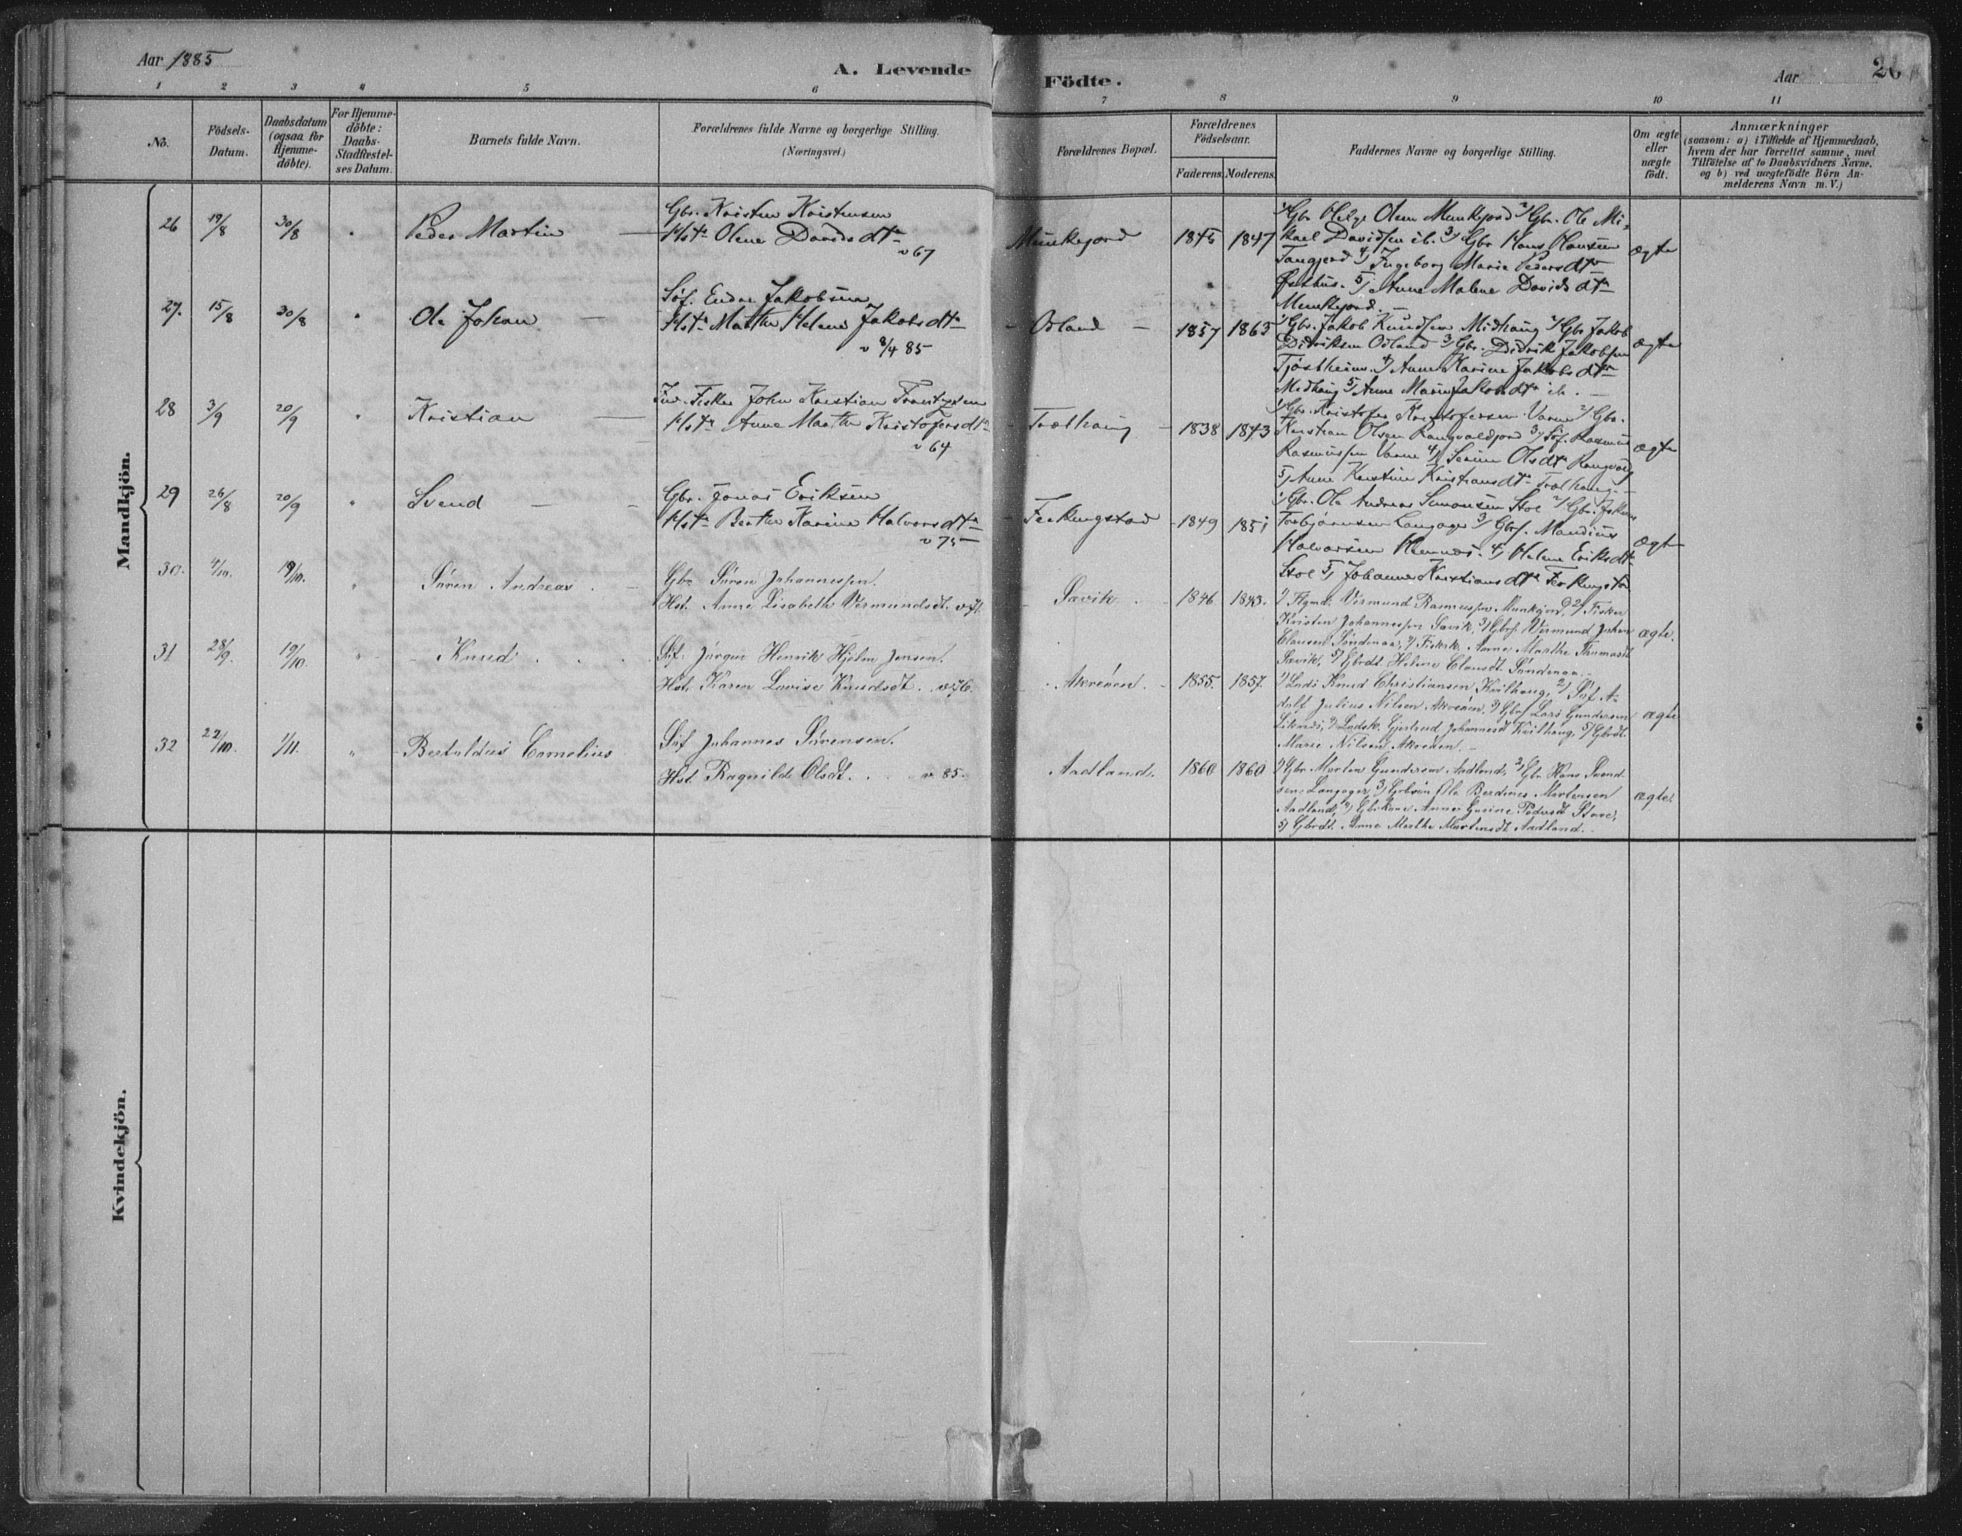 Aar 1885
A. Levende
Födte.
Aar
26
1 2 3 4 5 6 7 8 9 10 11
No.
Födsels-
Datum.
Daabsdatum
(ogsaa for
Hjemme-
döbte).
For Hjemme-
döbte:
Daabs-
Stadfæstel-
ses Datum.
Barnets fulde Navn.
Forældrenes fulde Navne og borgerlige Stilling.
(Næringsvei.)
Forældrenes Bopæl.
Forældrenes
Födselsaar.
Faderens. Moderens.
Faddernes Navne og borgerlige Stilling.
Om ægte
eller
uægte
födt.
Anmærkninger
(saasom: a) i Tilfælde af Hjemmedaab,
hvem der har forrettet samme, med
Tilföielse af to Daabsvidners Navne,
og b) ved uægtefödte Börn An-
melderens Navn m. V.)
Mandkjön.
26 19/8 30/8 " Peder Martin
Gbr. Kristen Kristensen
Hst. Olene Davidsdtr
v 67
Munkejord 1845 1847
1/ Gbr Helge Olsen Munkejord 2/ Gbr. Ole Mi-
kael Davidsen ib. 3/ Gbr Hans Hansen
4/ Ingeborg Marie Pedersdtr
Østhus. 5/ Anne Malene Davidsdtr
Munkejord. —
ægte
27. 15/8 30/8 " Ole Johan
Søf. Endre Jakobsen
Hst. Marthe Helene Jakobsdtr
v 85
Odland 1857 1863
1/ Gbr. Jakob Knudsen Midhaug 2/ Gbr Jakob
Didriksen Odland 3/ Gbr. Didrik Jakobsen
Tjøstheim 4/ Anne Karine Jakobsdtr
Midhaug 5/ Anne Marie Jakobsdtr ib. —
ægte
28 3/9 20/9 " Kristian
Fisker John Kristian
Hst. Anne Marthe Kristofersdtr
v 64
Trælhaug 1838 1843
1/ Gbr. Kristofer Kristofersen Varne 2/ Gbr.
Kristian Olsen Rangvaldjord 3/ Søf. Rasmus
Rasmussen Varne 4/ Serine Olsdtr
5/ Anne Kristine Kristiansdtr Trælhaug. —
ægte
29 26/8 20/9 " Svend
Gbr. Jonas Eriksen
Hst. Berthe Karine Halvorsdtr
v 75
Ferkingstad 1849 1851
1/ Gbr. Ole Andreas Simonsen Stol 2/ Gbr.
Torbjørnsen Langager 3/ Gbrs. Mandius
Halvorsen 4/ Helene Eriksdtr
Stol 5/ Johanne Kristiansdtr Ferkingstad
ægte
30. 4/10. 19/10. " Søren Andreas
Gbr Søren Johannessen.
Hst. Anne Lisabeth Vermundsdt. v 71.
Sævik. 1846 1843.
1/ Vermund Rasmussen Munkejord, 2/ Fisker
Kristen Johannessen Sævik, 3/ Gbrs. Vermund Johan
Clausen Söndenaa, 4/ Anne Marthe Thomasdt
Sævik, 5/ Gbrdt. Helene Clausdt. Söndenaa. —
ægte.
31 28/9. 19/10. " Knud
Søf. Jørgen Henrik Hjelm Jensen.
Hst. Karen Lovise Knudsdt. v 76.
Akreøen. 1855. 1857.
1/ Lods Knud Christiansen Kvilhaug, 2/ Søf A-
dolf Julius Nilsen Akreøen, 3/ Gbrs Lars Gundersen
4/ Lodsk. Gjertrud Johannesd Kvilhaug, 5/ Gbrdt.
Marie Nilsen Akreøen. —
ægte
32 22/10. 1/11. " Bertuldus Cornelius
Søf Johannes Sörensen.
Hst Ragnilde Olsdt. v. 85.
Aadland. 1860 1860
1/ Gbr Morten Gundersen Aadland, 2/ Gbr Hans Svend-
sen Langager, 3/ Ole Berdines Mortensen
Aadland, 4/ Gbrkone Anne Gurine Pedersdt Stave,
5/ Gbrdt. Anne Marthe Mortensdt Aadland.
ægte.
Kvindekjön.